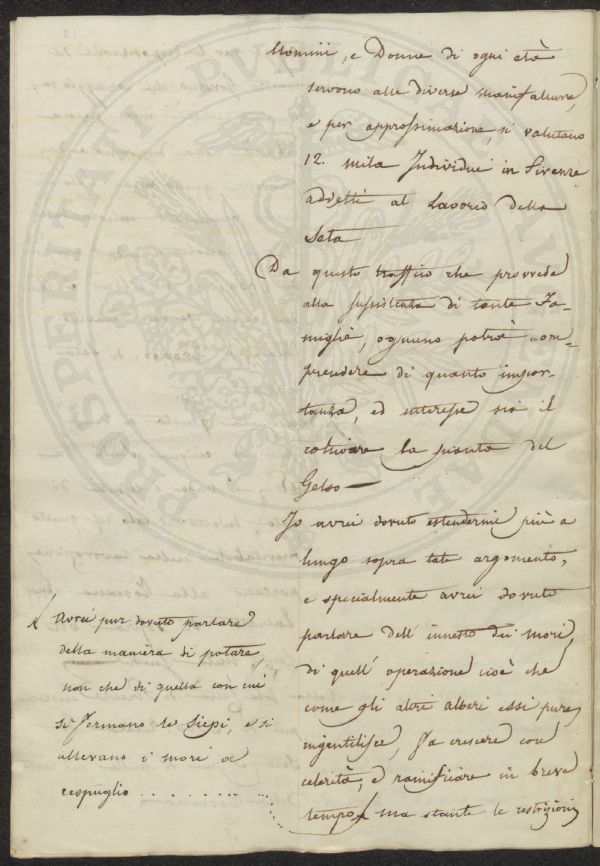 Uomini, e Donne di ogni età
servono alle diverse manifatture,
e per approssimazione, si valutano
12. mila Individui in Firenze
addetti al Lavorio della
Seta
Da questo traffico che provvede
alla sussistenza di tante Fa-
miglie, ognuno potrà com-
prendere di quanta impor-
tanza, ed interesse sia il
coltivare la pianta del
Gelso —
Io avrei dovuto estendermi più a
lungo sopra tale argomento,
e specialmente avrei dovuto
parlare dell' innesto dei mori,
di quell' operazione cioè che
come gli altri alberi essi pure
ingentilisce, fa crescere con
celerità, e ramificare in breve
tempo / ma stante le restrizioni
/ Avrei pur dovuto parlare
della maniera di potare
non che di quella con cui
si formano le Siepi, e si
allevano i mori a
cespuglio . . . . . . . .
PROSPERITATI PUBLICAE AUGENDAE